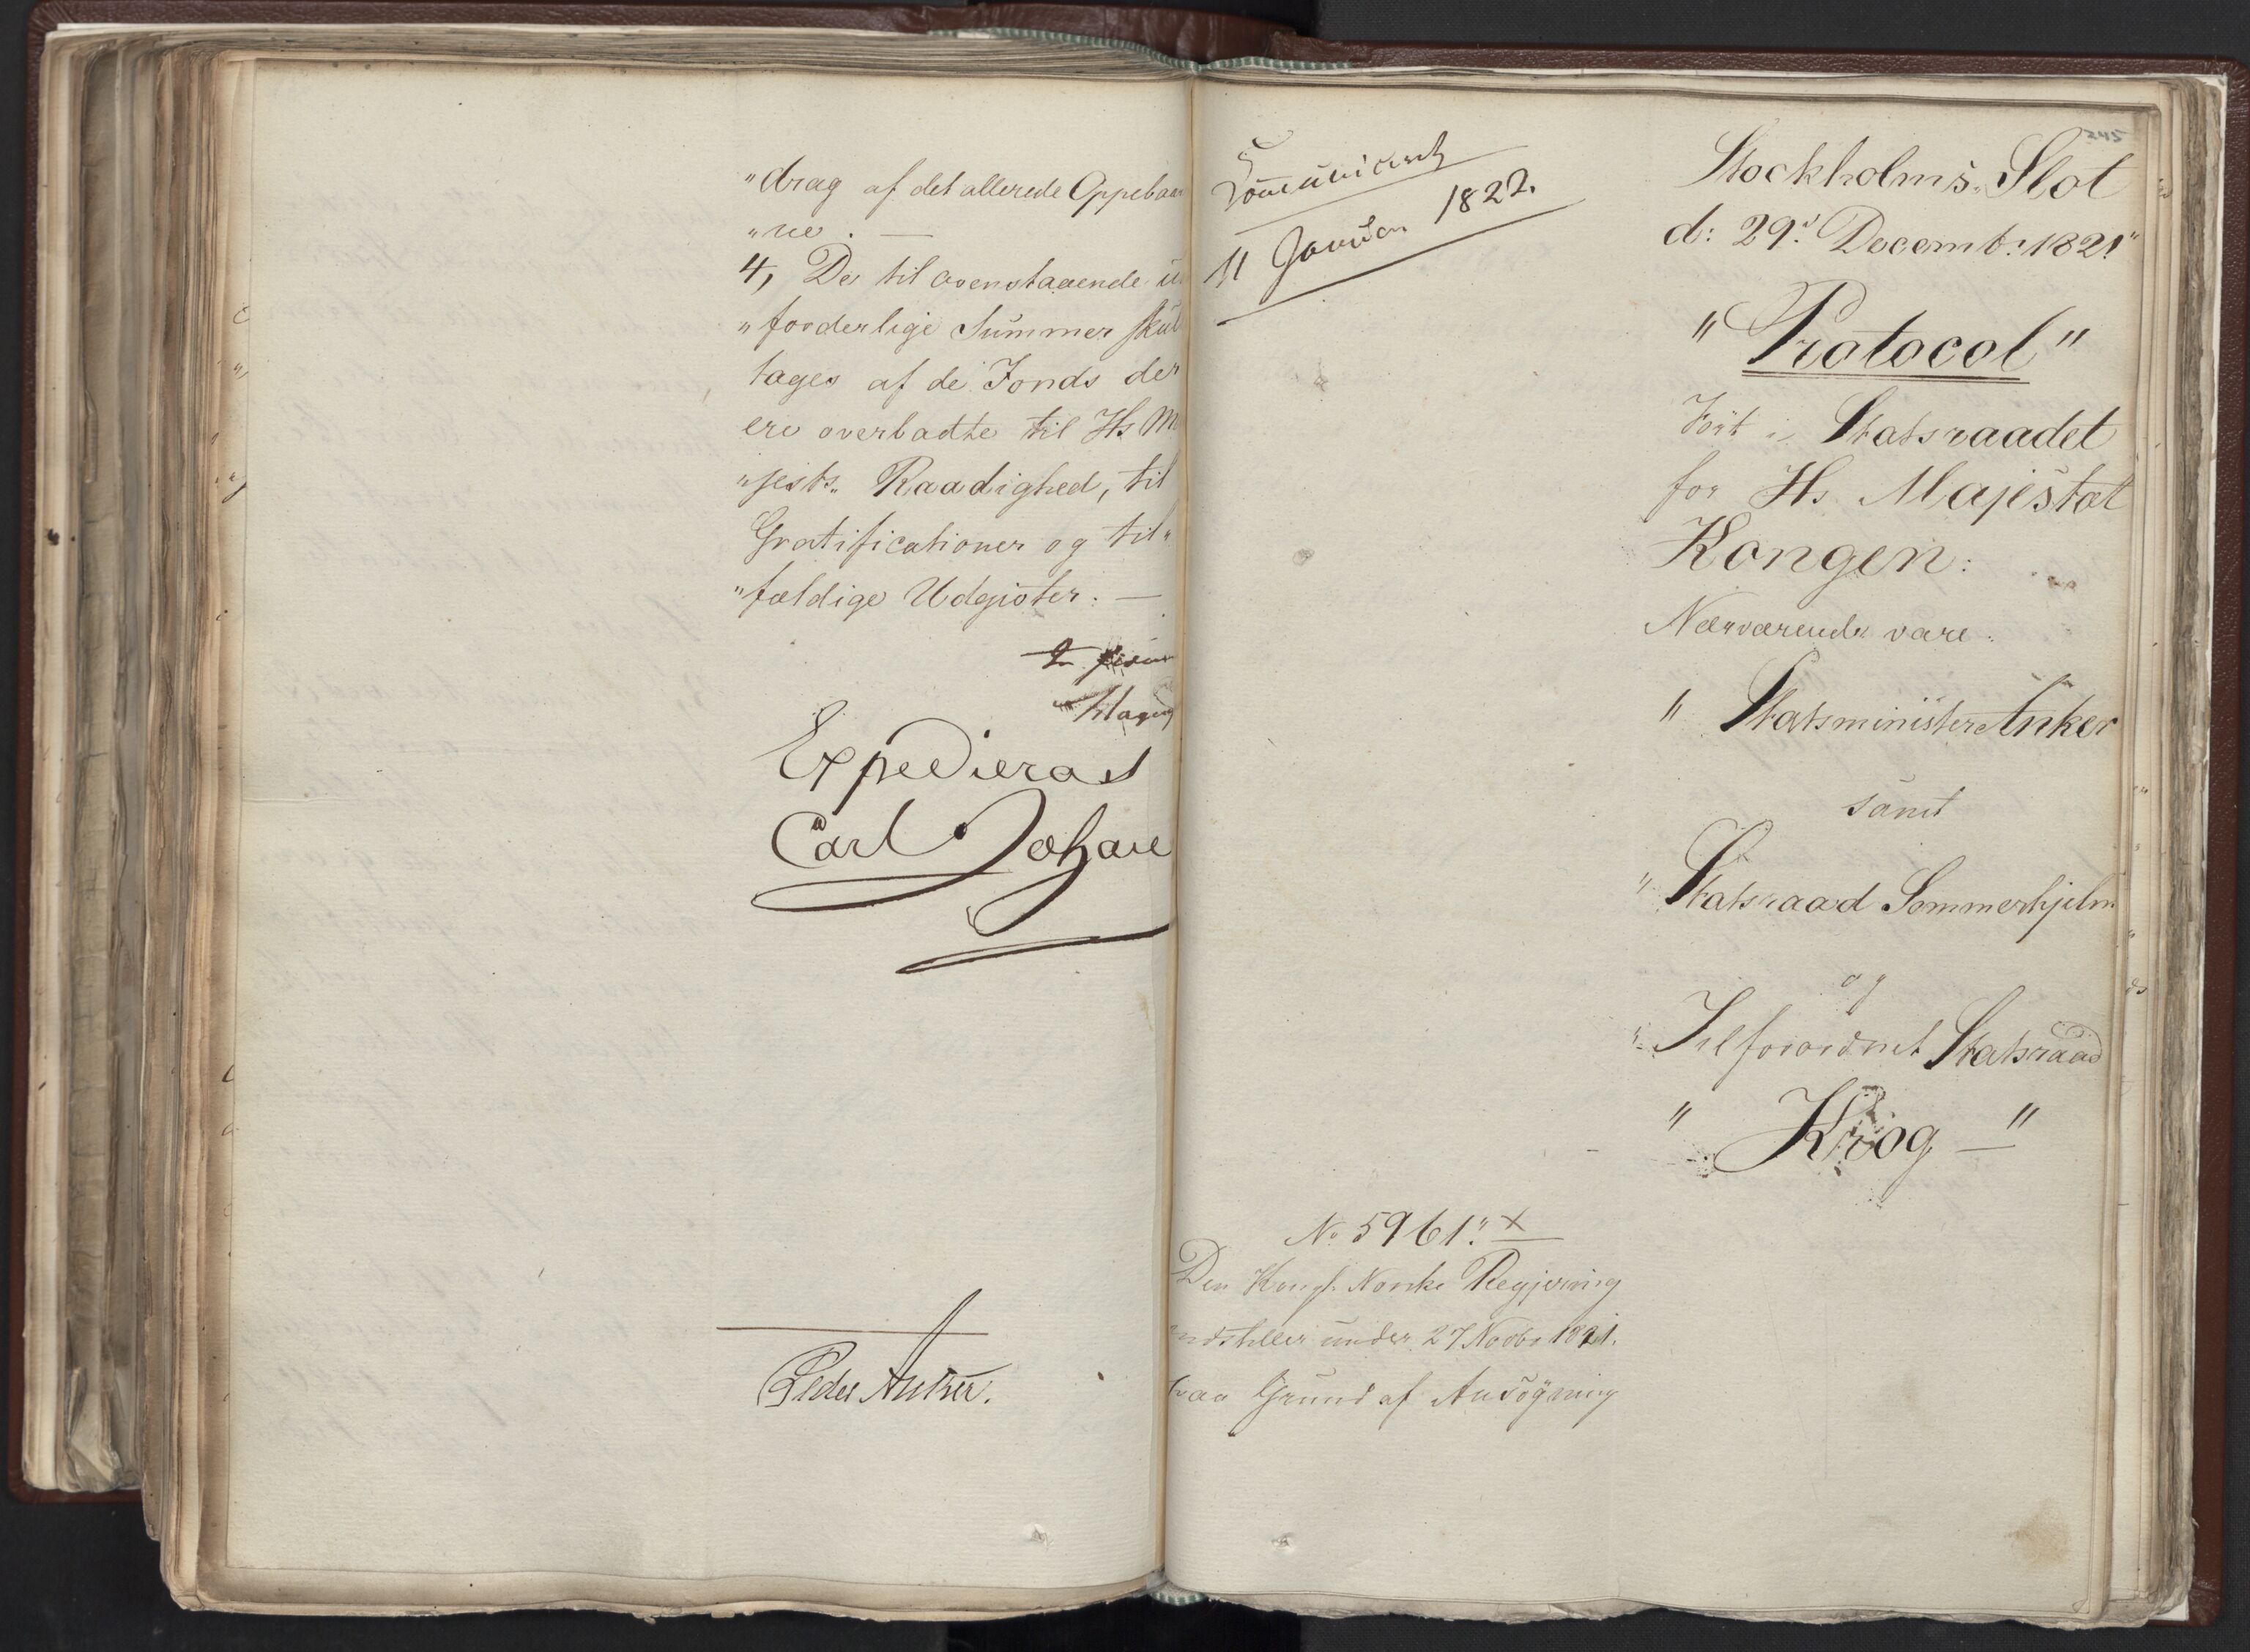 "drag af det allerede Oppebaar
"ne. —
4, De til ovenstaaende u
"forderlige Summer skul
tages af de Fonds der
ere overladte til Hs M
"jests. Raadighed, til
Gratificationer og til"
"fældige Udgivter. —
Expedieras
Carl Johan
Peder Anker.
Communicert
11 Januar 1822.
245
Stockholms Slot
d: 29d. Decemb: 1821"
"Protocol"
Fört i Statsraadet
for Hs Majestæt
Kongen:
Nærværende vare:
" Statsminister Anker
samt
" Statsraad Sommerhjelm
og
" Tilforordnet Statsraad
" Krog — "
No 5961." x
Den Kongl. Norske Regjering
indstiller under 27 Novbr 1821.
paa Grund af Ansögning